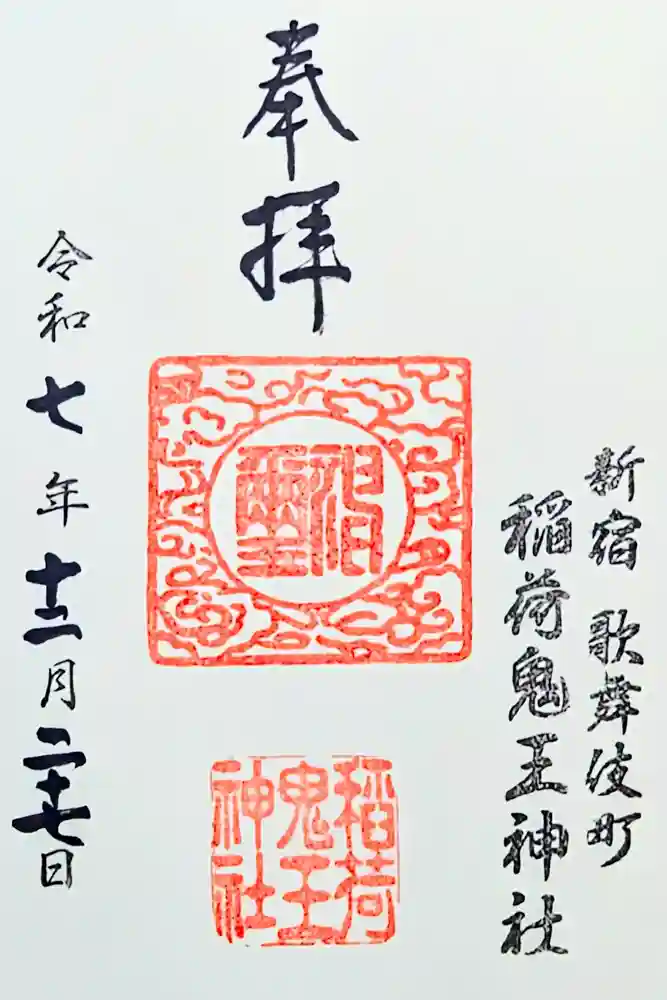 新宿 歌舞伎町
稲荷鬼王神社
奉拝
稲荷
鬼王
神社
令和七年十二月二十七日